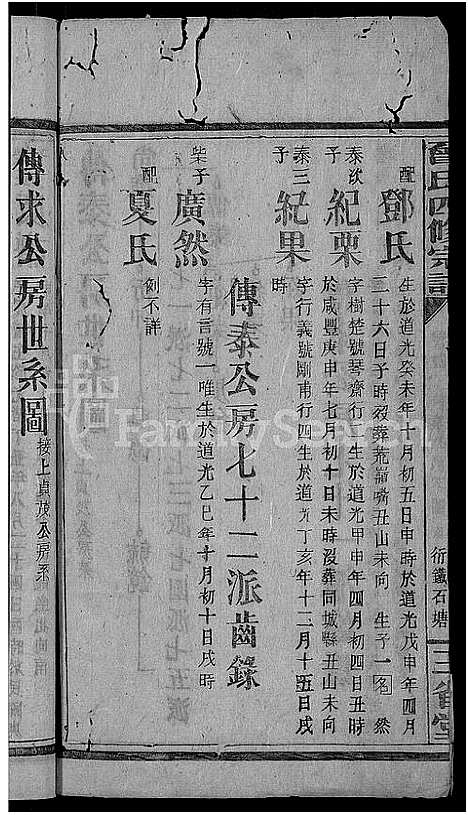 曾氏四修宗譜
衍鐵石塘
三省堂
配
鄧氏
生於道光癸未年十月初五日申時於道光戊申年四月
二十六日子時歿葬荒嶺嘴丑山未向 生子一名 然
泰次子
紀栗
字樹楚號琴齋行一生於道光甲申年四月初四日丑時
於咸豐庚申年七月初十日未時歿葬同城縣丑山未向
泰三子
紀果
字行義號剛甫行四生於道光丁亥年十二月十五日戌
時
傳泰公房七十二派齒錄
柴子
廣然
字有言號一唯生於道光乙巳年十月初十日戌時
配
夏氏
例不詳
傳求公房世系圖
接上貞茂公房系
FamilySearch